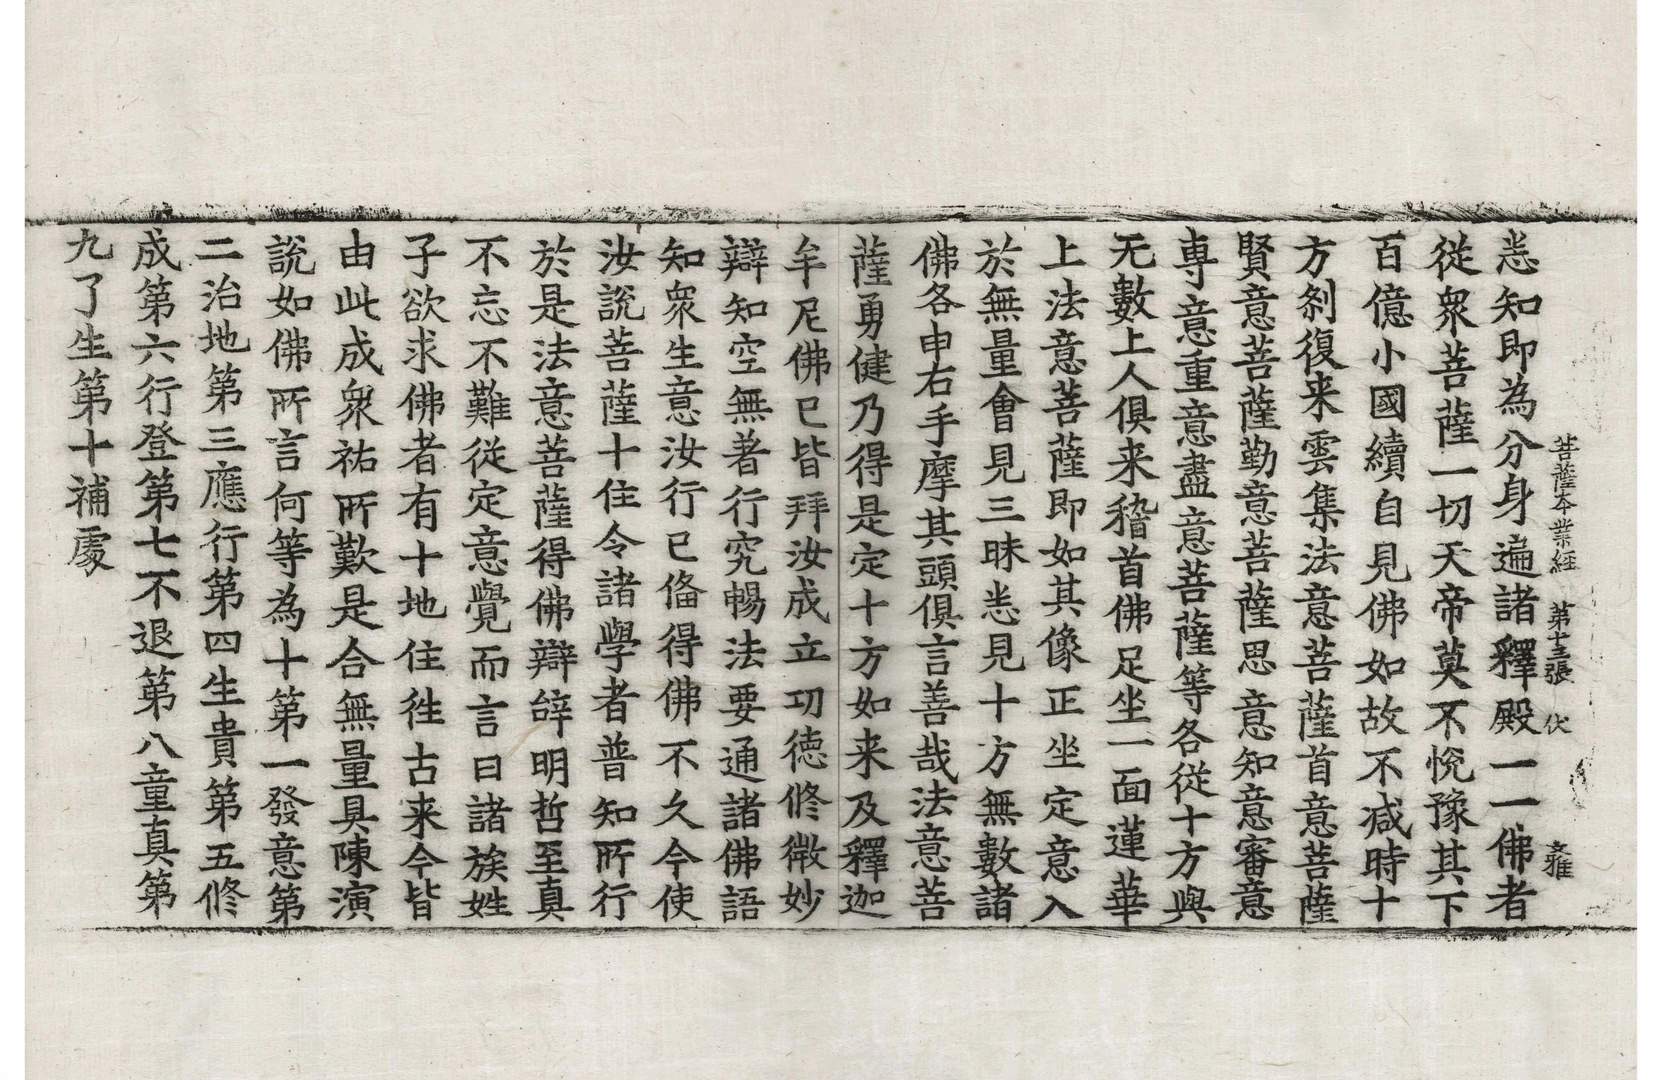 菩薩本業經　第十三張　伏　文雅
悉知即為分身遍諸釋殿一一佛者
從衆菩薩一切天帝莫不恱豫其下
百億小國續自見佛如故不减時十
方刹復来雲集法意菩薩首意菩薩
賢意菩薩勤意菩薩思意知意審意
専意重意盡意菩薩等各從十方與
无數上人俱来稽首佛足坐一面蓮華
上法意菩薩即如其像正坐定意入
於無量會見三昧悉見十方無數諸
佛各申右手摩其頭俱言善哉法意菩
薩勇健乃得是定十方如来及釋迦
牟尼佛已皆拜汝成立功徳俢微妙
辯知空無著行究暢法要通諸佛語
知衆生意汝行已俻得佛不久今使
汝說菩薩十住令諸學者普知所行
於是法意菩薩得佛辯辝明哲至真
不忘不難從定意覺而言曰諸族姓
子欲求佛者有十地住徃古来今皆
由此成衆祐所歎是合無量具陳演
說如佛所言何等為十第一發意第
二治地第三應行第四生貴第五俢
成第六行登第七不退第八童真第
九了生第十補處